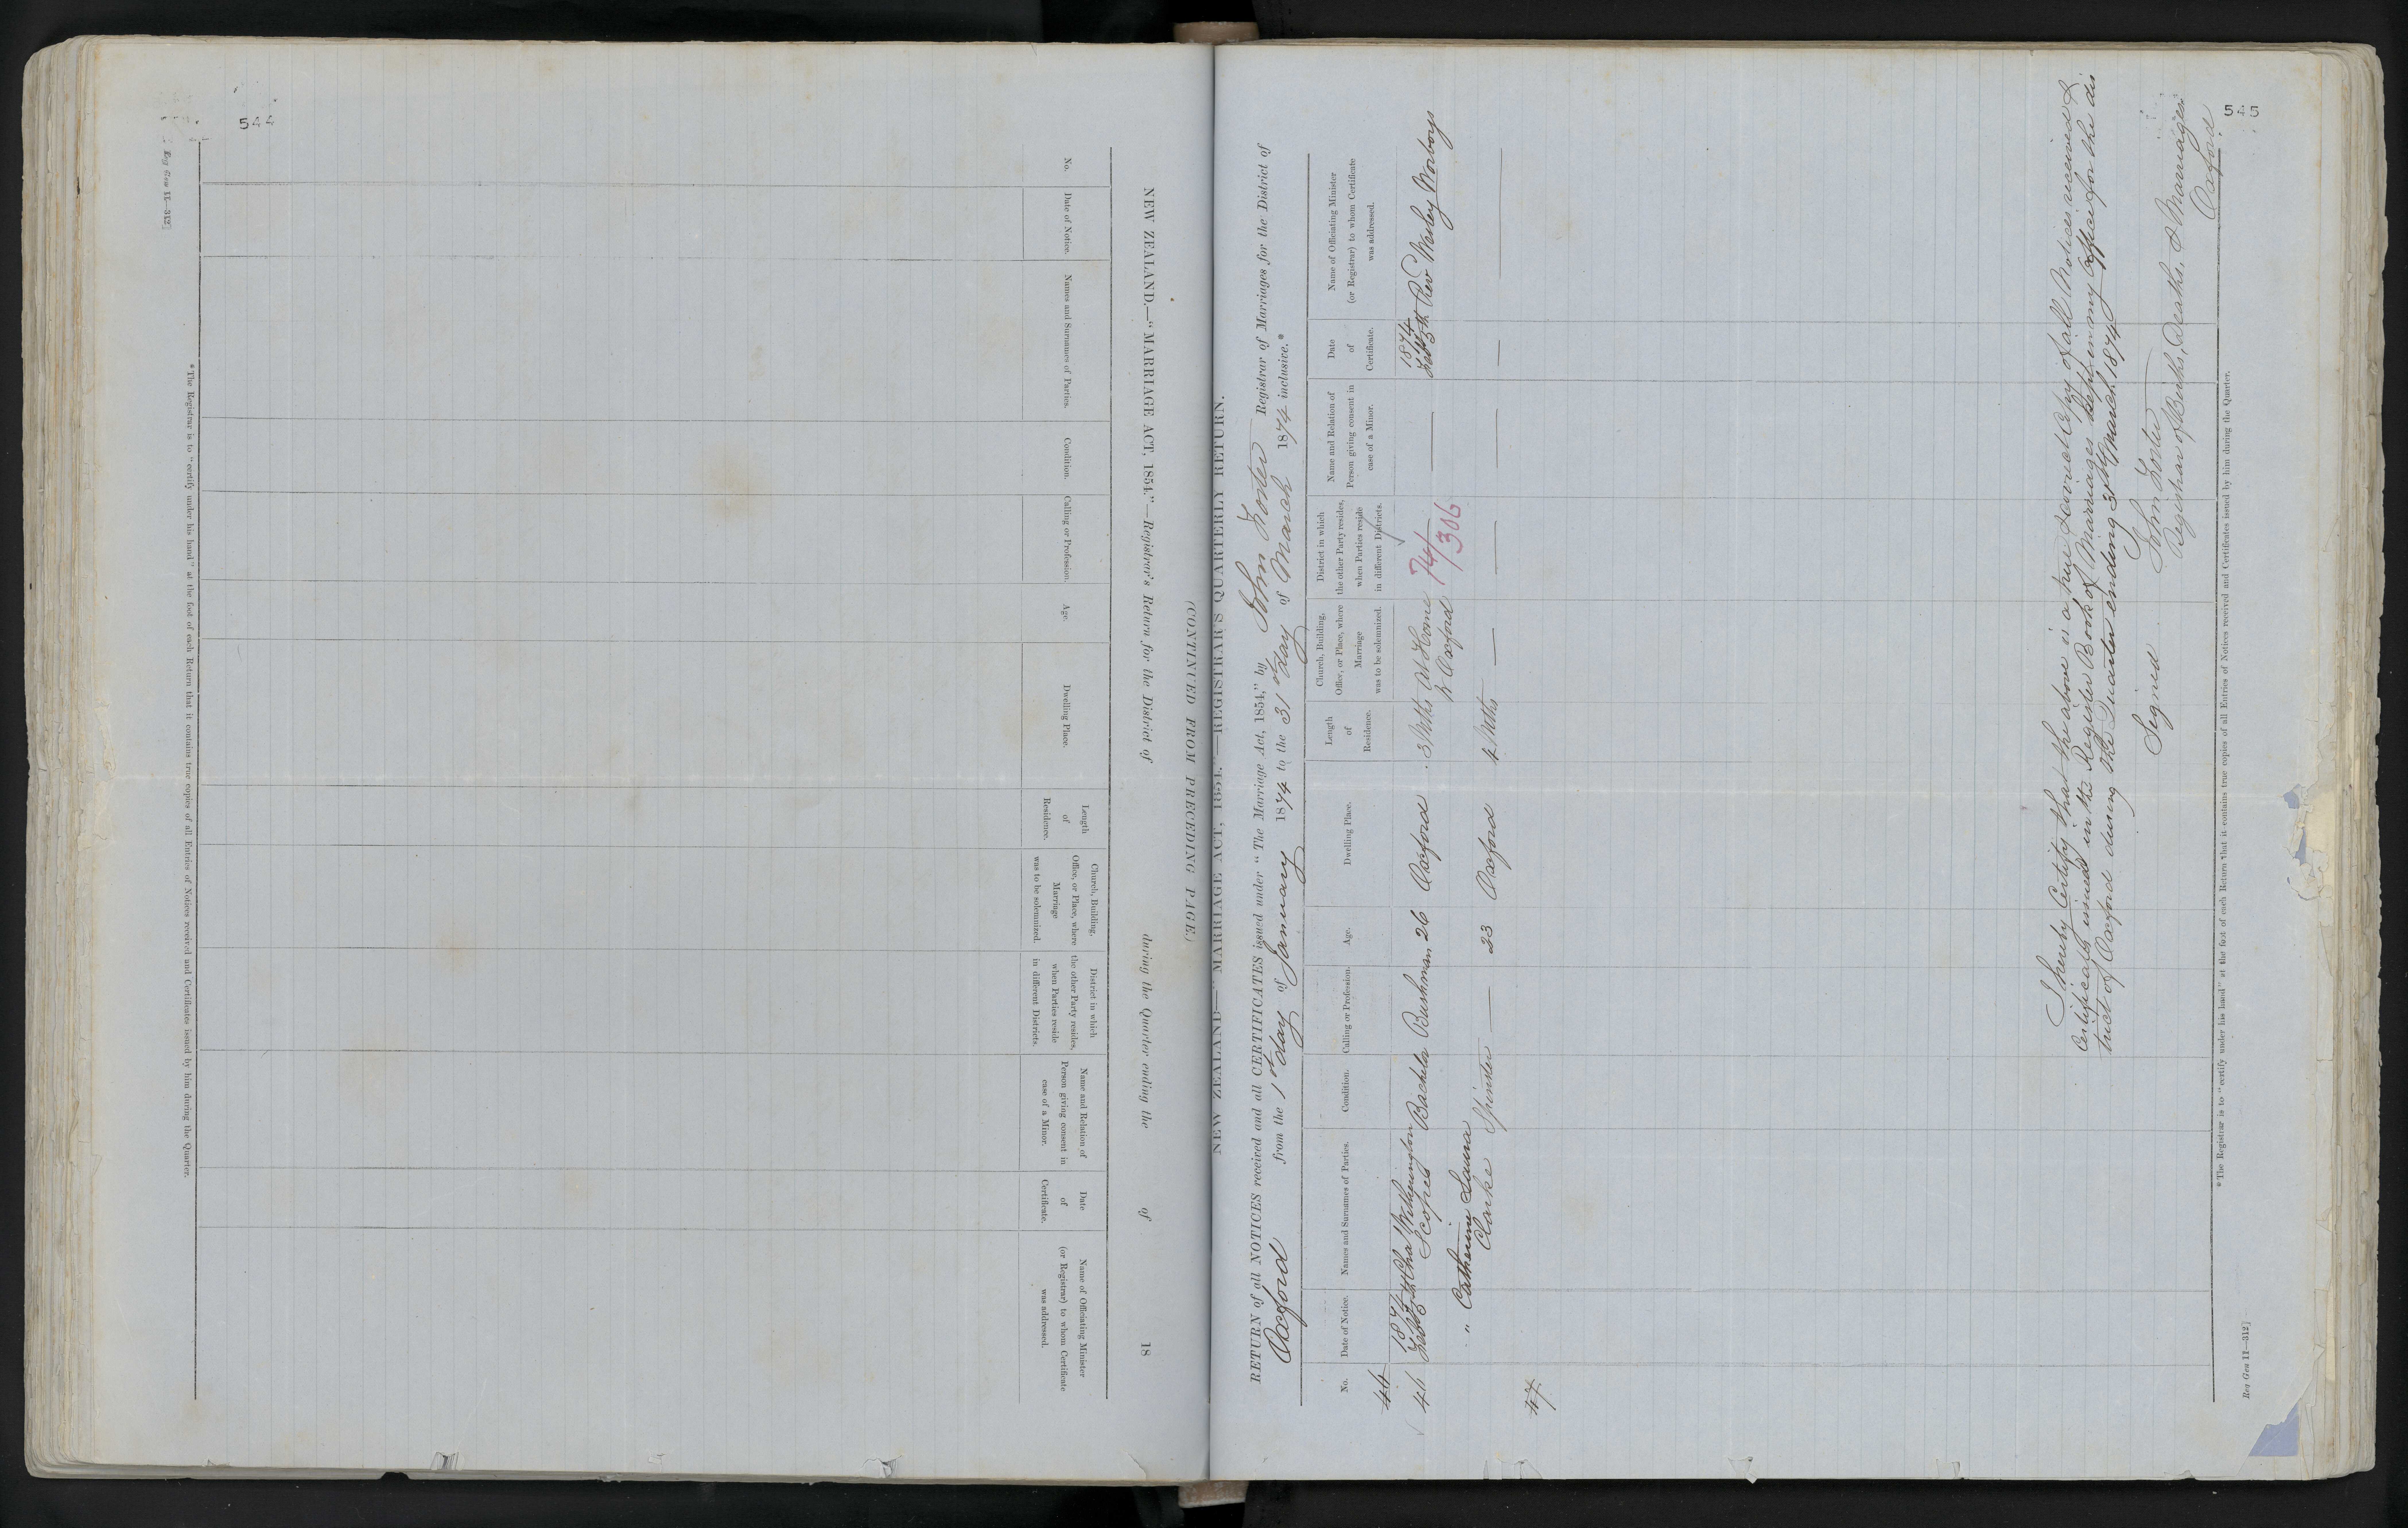 544
[Reg Gen 11—312]
NEW ZEALAND.—"MARRIAGE ACT, 1854."—Registrar's Return for the District of during the Quarter ending the of 18
(CONTINUED FROM PRECEDING PAGE.)
No.
Date of Notice.
Names and Surnames of Parties.
Condition.
Calling or Profession.
Age.
Dwelling Place.
Length
of
Residence.
Church, Building,
Office, or Place, where
Marriage
was to be solemnized.
District in which
the other Party resides,
when Parties reside
in different Districts.
Name and Relation of
Person giving consent in
case of a Minor.
Date
of
Certificate.
Name of Officiating Minister
(or Registrar) to whom Certificate
was addressed.
* The Registrar is to "certify under his hand" at the foot of each Return that it contains true copies of all Entries of Notices received and Certificates issued by him during the Quarter.
545
NEW ZEALAND—"MARRIAGE ACT, 1854."—REGISTRAR'S QUARTERLY RETURN.
RETURN of all NOTICES received and all CERTIFICATES issued under "The Marriage Act, 1854," by John Foster Registrar of Marriages for the District of
Oxford from the 1st day of January 1874 to the 31st day of March 1874 inclusive.*
No.
Date of Notice.
Names and Surnames of Parties.
Condition.
Calling or Profession.
Age.
Dwelling Place.
Length
of
Residence.
Church, Building,
Office, or Place, where
Marriage
was to be solemnized.
District in which
the other Party resides,
when Parties reside
in different Districts.
Name and Relation of
Person giving consent in
case of a Minor.
Date
of
Certificate.
Name of Officiating Minister
(or Registrar) to whom Certificate
was addressed.
46
1874
1874
46 Chas Witherington Bachelor Bushman 26 Oxford 3 Mths At Home 74/ Rev Wesley Worboys
Scopes W Oxford 306
" Catherine Laura
Clarke Spinster — 23 Oxford 4 Mths — — — — —
47
I hereby Certify that the above is a true & correct Copy of all Notices received &
Certificates issued in the Register Book of Marriages kept in my Office for the dis
trict of Oxford during the Quarter ending 31st March 1874
Signed John Foster
Registrar of Births, Deaths, & Marriages
Oxford
* The Registrar is to "certify under his hand" at the foot of each Return that it contains true copies of all Entries of Notices received and Certificates issued by him during the Quarter.
Reg Gen 11—312]